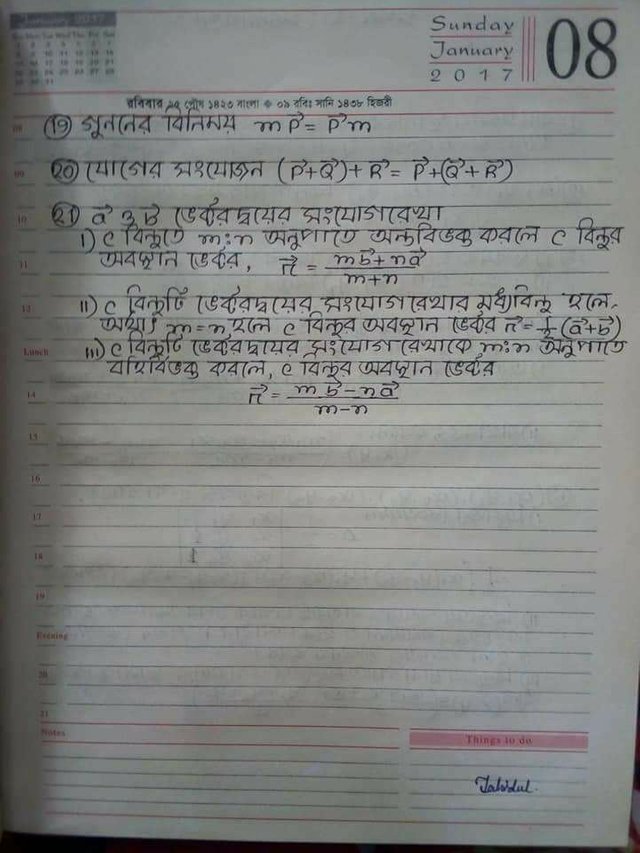 January 2017
Sunday
January
2017
08
রবিবার ২৫ পৌষ ১৪২৩ বাংলা ❖ ০৯ রবিঃ সানি ১৪৩৮ হিজরী
(19) গুননের বিনিময় m P⃗ = P⃗ m
09
(20) যোগের সংযোজন (P⃗+Q⃗)+R⃗ = P⃗+(Q⃗+R⃗)
10
(21) a⃗ ও b⃗ ভেক্টরদ্বয়ের সংযোগরেখা
i) c বিন্দুতে m:n অনুপাতে অন্তর্বিভক্ত করলে c বিন্দুর
11
অবস্থান ভেক্টর, r⃗ = (m b⃗ + n a⃗)/(m+n)
12
ii) c বিন্দুটি ভেক্টরদ্বয়ের সংযোগরেখার মধ্যবিন্দু হলে,
অর্থাৎ m=n হলে c বিন্দুর অবস্থান ভেক্টর r⃗ = ½(a⃗+b⃗)
Lunch
iii) c বিন্দুটি ভেক্টরদ্বয়ের সংযোগ রেখাকে m:n অনুপাতে
বহির্বিভক্ত করলে, c বিন্দুর অবস্থান ভেক্টর
14
r⃗ = (m b⃗ − n a⃗)/(m−n)
15
16
17
18
19
Evening
20
21
Notes
Things to do